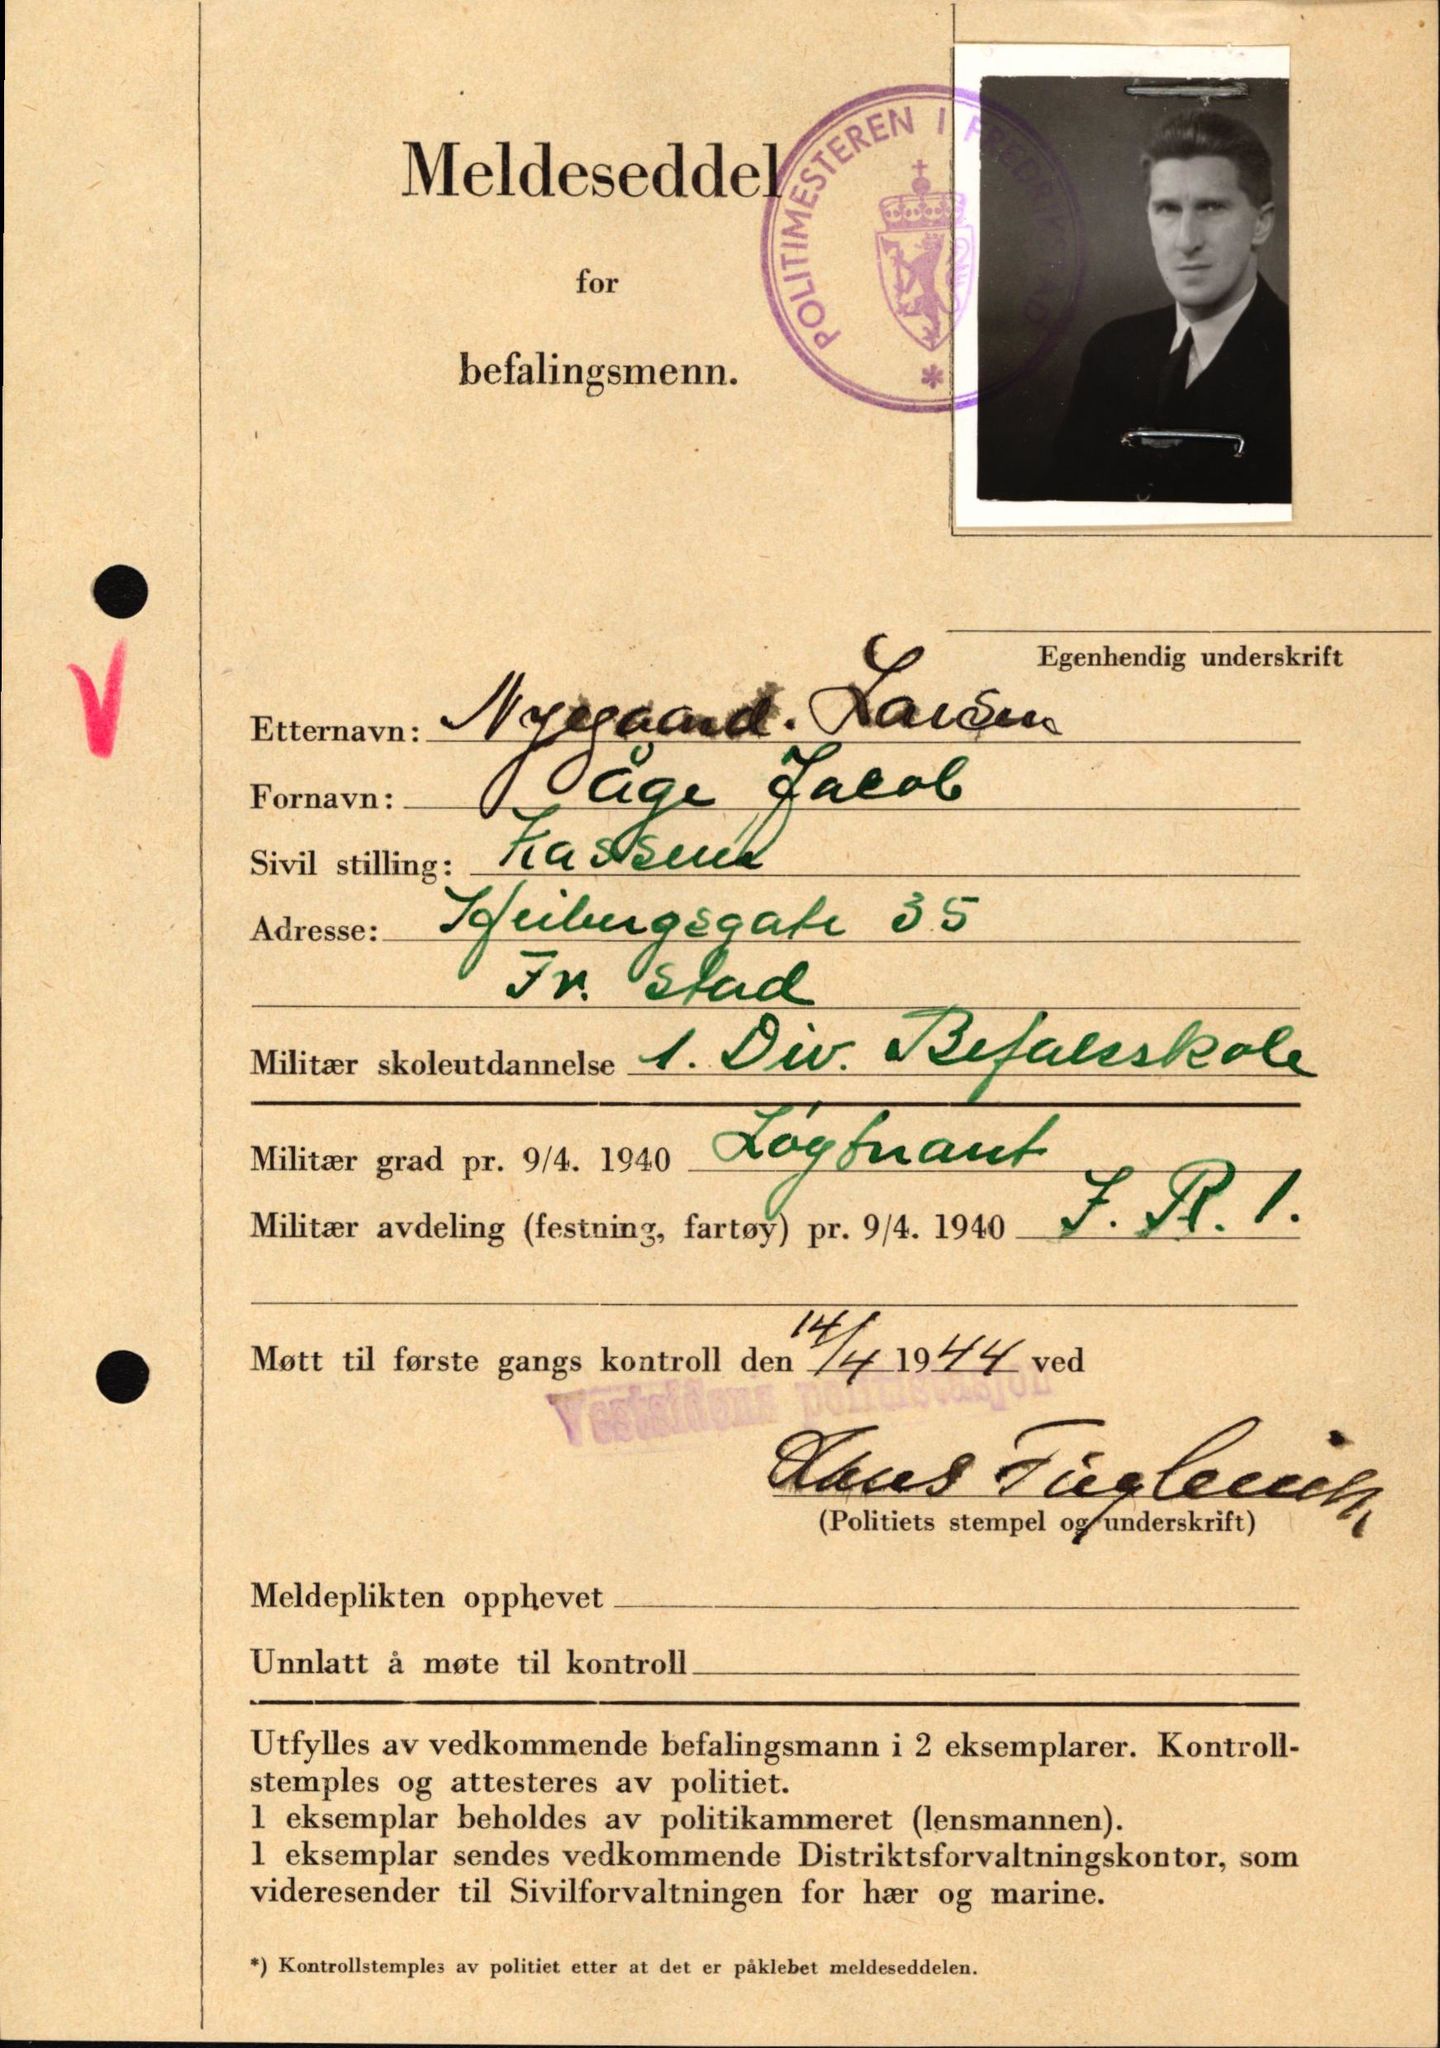 Meldeseddel
for
befalingsmenn.
POLITIMESTEREN I FREDRIKSTAD
*
V
Egenhendig underskrift
Etternavn: Nygaard. Larsen
Fornavn: Åge Jacob
Sivil stilling: Kasserer
Adresse: Heibergsgate 35
Fr. stad
Militær skoleutdannelse 1. Div. Befalsskole
Militær grad pr. 9/4. 1940 Løytnant
Militær avdeling (festning, fartøy) pr. 9/4. 1940 I. R. 1.
Møtt til første gangs kontroll den 14/4 1944 ved
politistasjon
Hans
(Politiets stempel og underskrift)
Meldeplikten opphevet
Unnlatt å møte til kontroll
Utfylles av vedkommende befalingsmann i 2 eksemplarer. Kontroll-
stemples og attesteres av politiet.
1 eksemplar beholdes av politikammeret (lensmannen).
1 eksemplar sendes vedkommende Distriktsforvaltningskontor, som
videresender til Sivilforvaltningen for hær og marine.
*) Kontrollstemples av politiet etter at det er påklebet meldeseddelen.